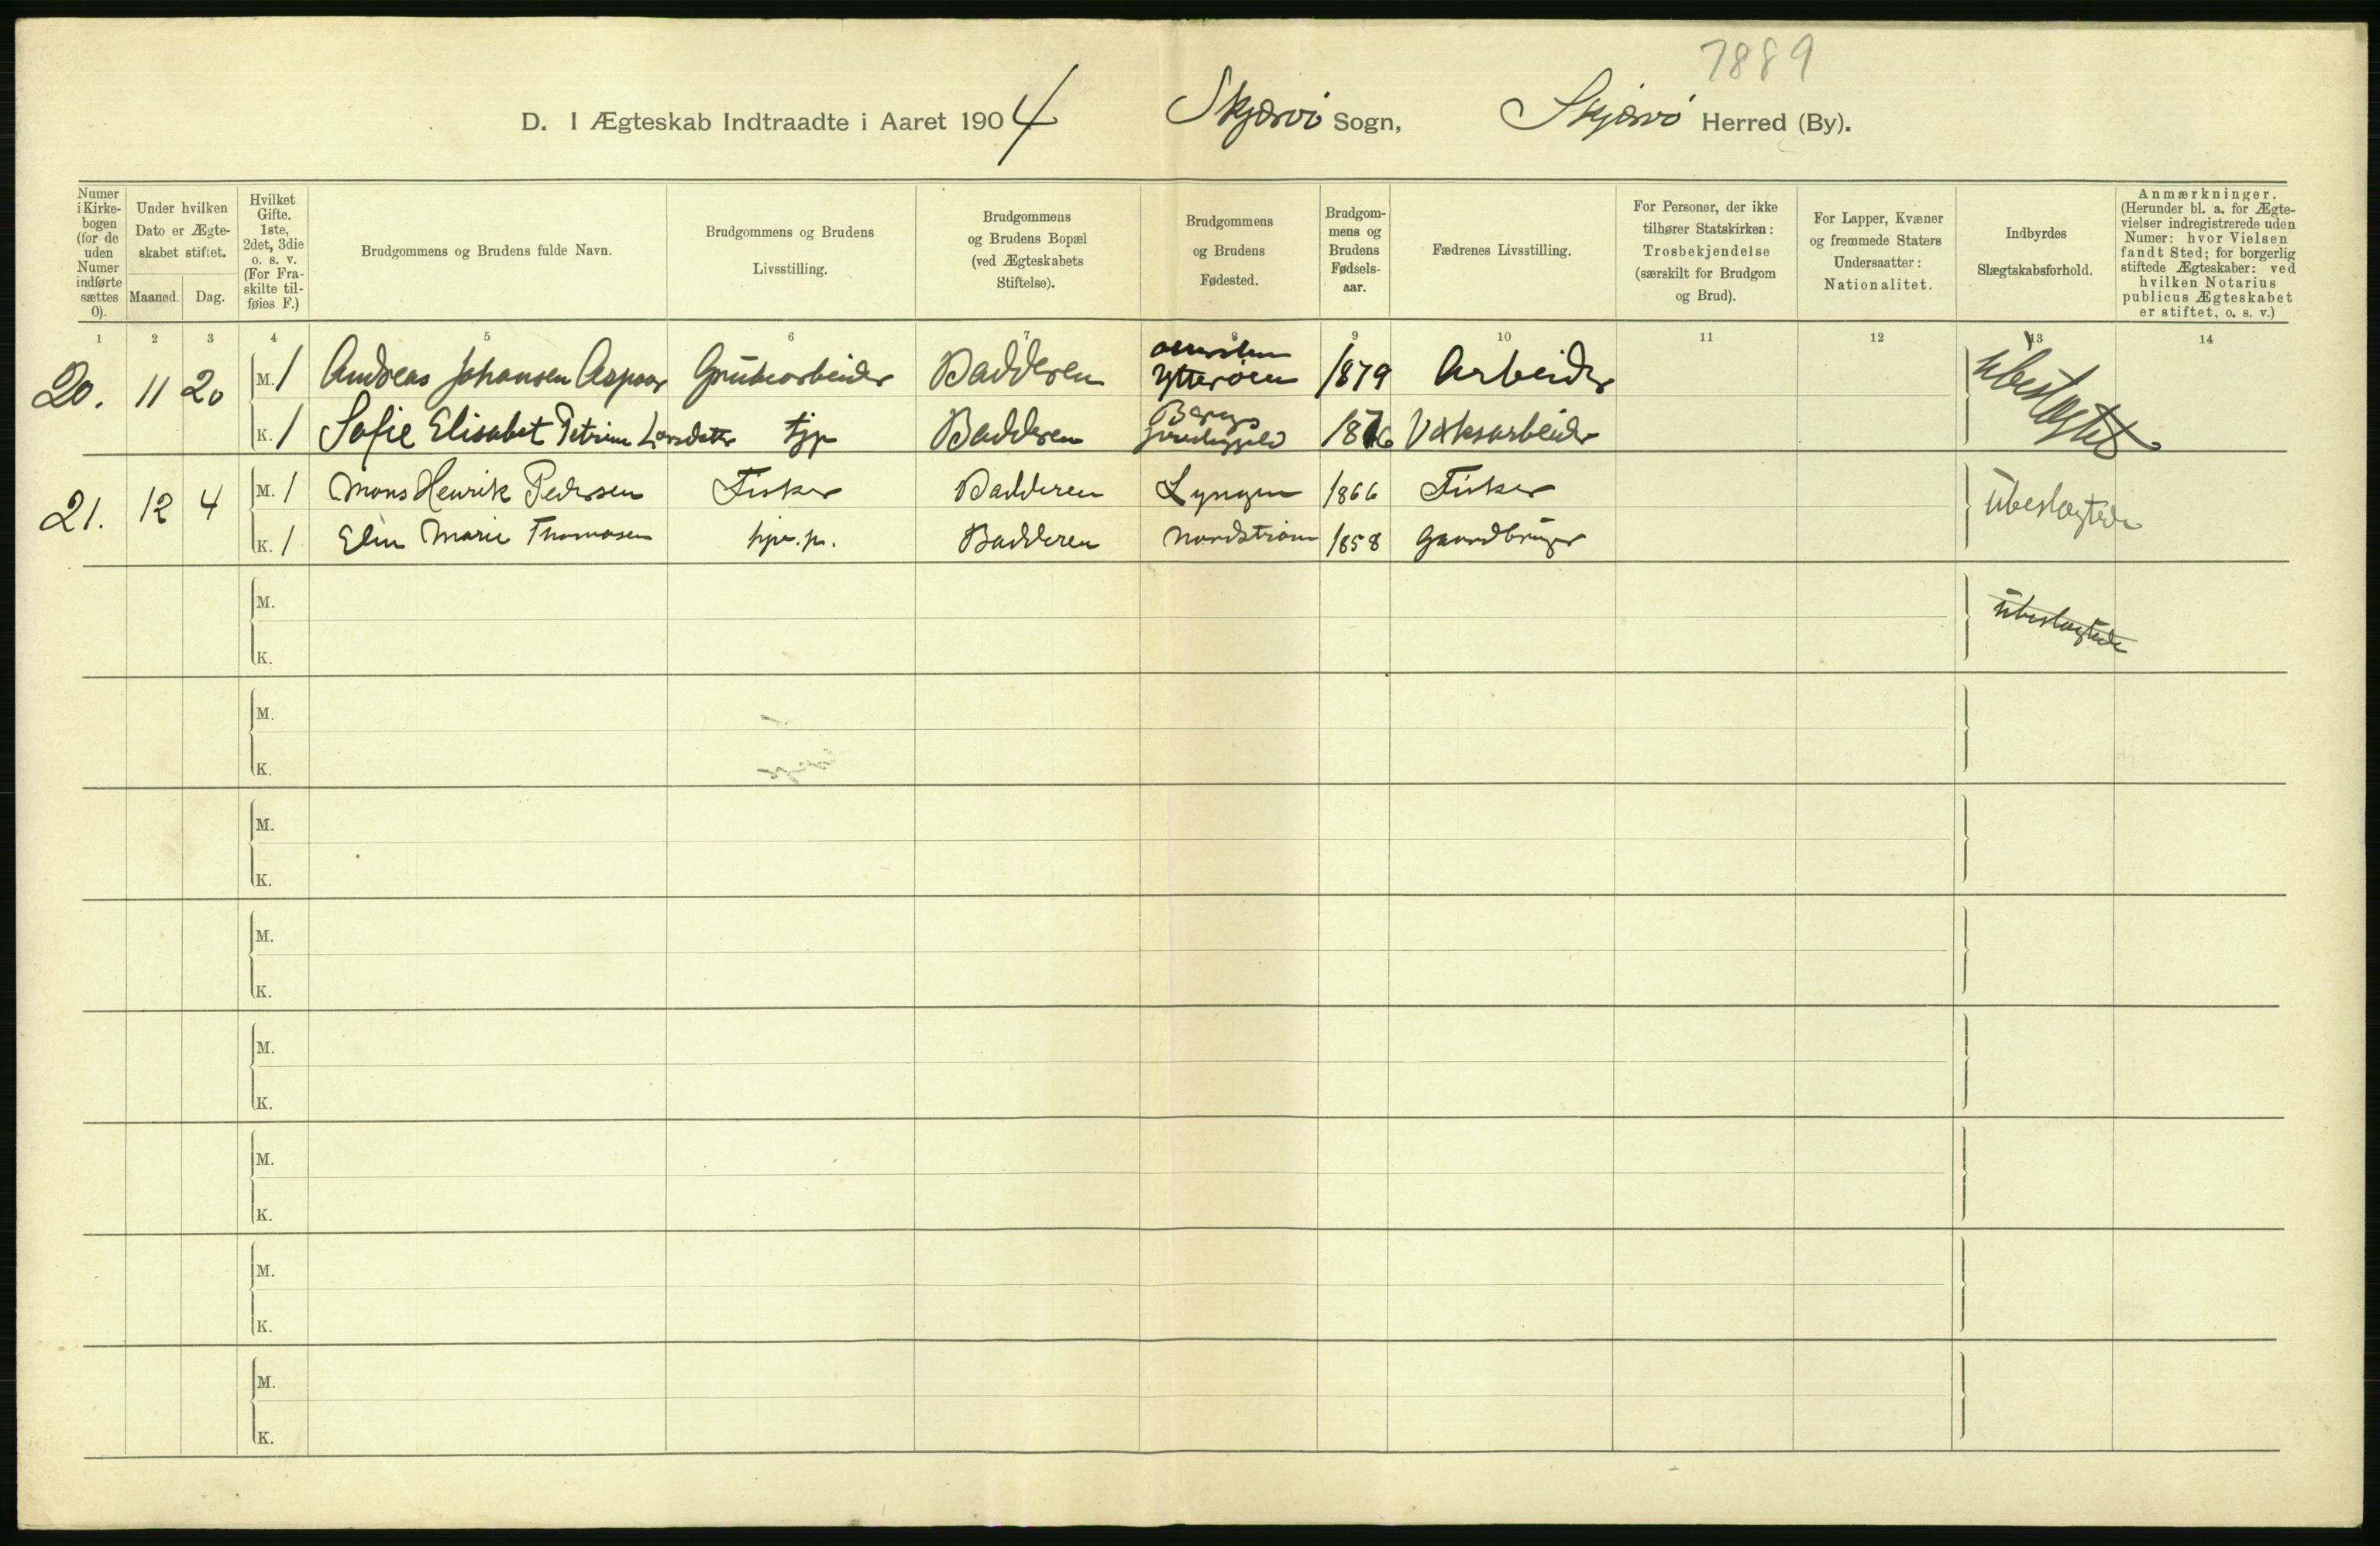 7889
D. I Ægteskab Indtraadte i Aaret 1904 Skjærvö Sogn, Skjærvö Herred (By).
Numer i Kirkebogen (for de uden Numer indførte sættes 0).
Under hvilken Dato er Ægteskabet stiftet.
Maaned. Dag.
Hvilket Gifte. 1ste, 2det, 3die o. s. v. (For Fraskilte tilføies F.)
Brudgommens og Brudens fulde Navn.
Brudgommens og Brudens Livsstilling.
Brudgommens og Brudens Bopæl (ved Ægteskabets Stiftelse).
Brudgommens og Brudens Fødested.
Brudgommens og Brudens Fødselsaar.
Fædrenes Livsstilling.
For Personer, der ikke tilhører Statskirken: Trosbekjendelse (særskilt for Brudgom og Brud).
For Lapper, Kvæner og fremmede Staters Undersaatter: Nationalitet.
Indbyrdes Slægtskabsforhold.
Anmærkninger. (Herunder bl. a. for Ægtevielser indregistrerede uden Numer: hvor Vielsen fandt Sted; for borgerlig stiftede Ægteskaber: ved hvilken Notarius publicus Ægteskabet er stiftet, o. s. v.)
1 2 3 4 5 6 7 8 9 10 11 12 13 14
20. 11 20 M. 1 Andreas Johansen Aspaas Grubearbeider Badderen Ytteröen 1879 Arbeider ubeslægtet
K. 1 Sofie Elisabet Petrine Larsdatter tjp Badderen 1876 Værksarbeider
21. 12 4 M. 1 Mons Henrik Pedersen Fisker Badderen Lyngen 1866 Fisker ubeslægtede
K. 1 Elen Marie Thomasen Badderen Nordström 1858 Gaardbruger
M. ubeslægtede
K.
M.
K.
M.
K.
M.
K.
M.
K.
M.
K.
M.
K.
M.
K.